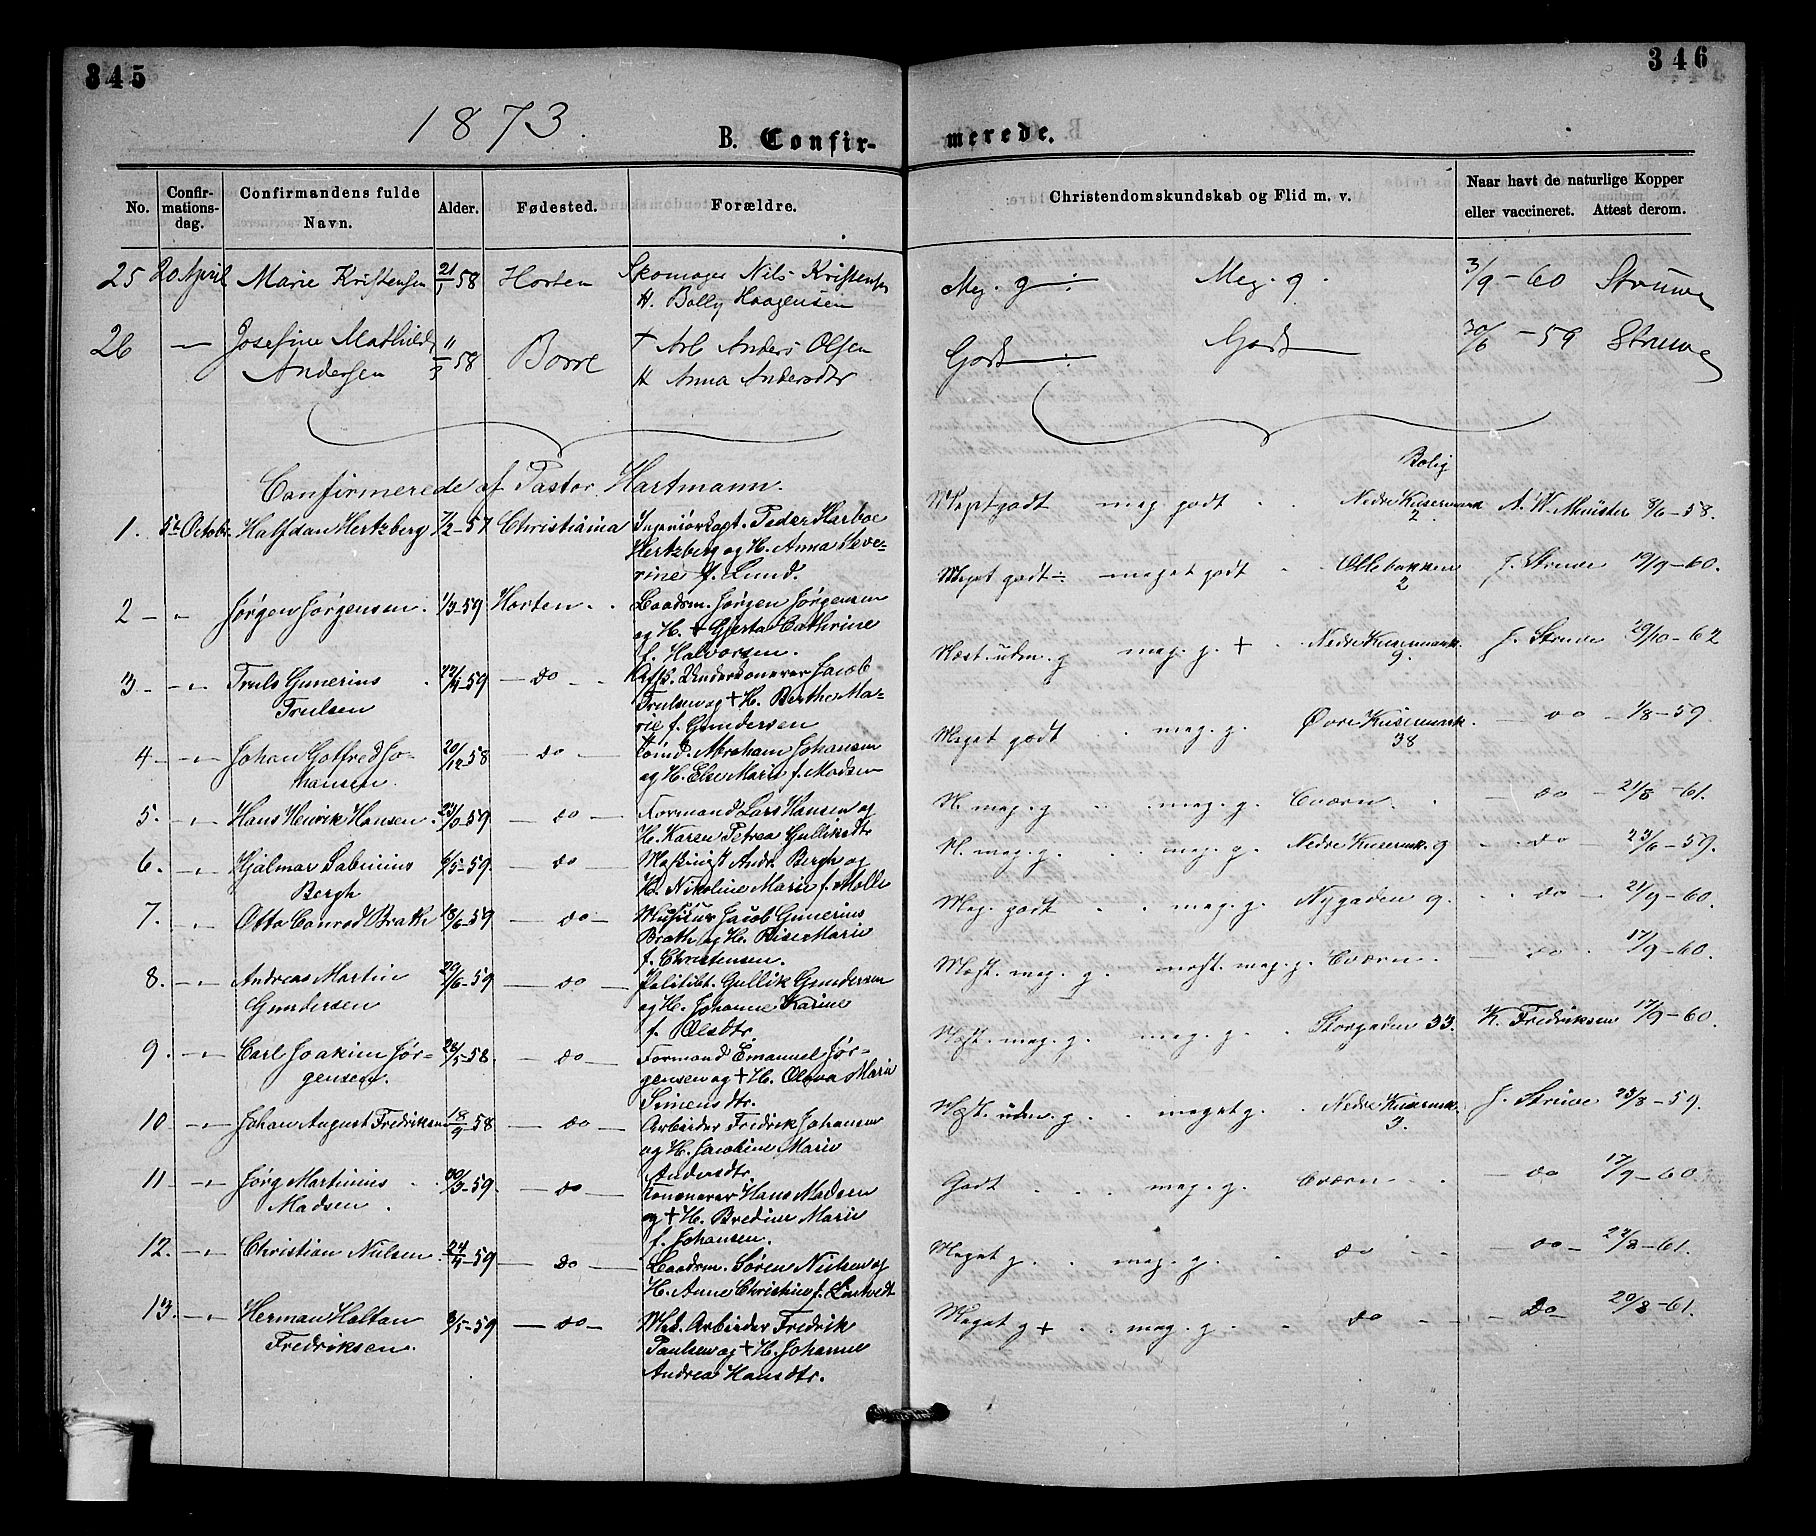 345
346
1873.
B. Confir-
merede.
No.
Confir-
mations-
dag.
Confirmandens fulde
Navn.
Alder.
Fødested.
Forældre.
Christendomskundskab og Flid m. v.
Naar havt de naturlige Kopper
eller vaccineret. Attest derom.
25 20 April Marie Kristensen 21/ 58 Horten Skomager Nils Kristensen Meg. g ÷ Meg. g. 3/9-60 Struwe
H. Bolly Haagensen
26 — Josefine Mathilde 11/3 58 Borre † Arb Anders Olsen Godt ÷ Godt 30/6-59 Struwe
Andersen H Anna Andersdtr
Confirmerede af Pastor Hartmann.
Bolig
1. 5te Octobr. Halfdan Hertzberg 7/2-57 Christiania Ingeniørkapt. Peder Harboe Megetgodt meg godt Nedre Keisermark 2. A. W. Münster 8/6-58.
Hertzberg og H. Anna Seve-
rine f. Lund.
2 — " Jørgen Jørgensen. 1/3-59 Horten Baadsm. Jørgen Jørgensen Meget godt ÷ meget godt Ollebakken 2 J. Struve 19/9-60.
og H. † Gjerta Cathrine
f. Halvorsen.
3. — " Truls Gunerius 22/4-59 — do — Underkanoner Jacob Næst. udm. g meg. g. + Nedre Keisermark 9. J. Struve 29/10-62
Trulsen Trulsen og † H. Berthe Ma-
rie f. Gundersen
4. — " Johan Gotfred Jo- 20/12 58 — do — Tømd. Abraham Johansen Meget godt meg. g. Øvre Keisermark. 38 — do — 1/8-59.
hansen. og H. Else Marie f. Madsen
5. — " Hans Henrik Hansen. 23/3-59 — do — Formand Lars Hansen og N. meg. g meg. g. Cværn. — do — 21/8-61.
H. Karen Petrea Gulliksdtr
6. — " Hjalmar Sabinius 6/5-59 — do — Maskinist Andr. Bergh og N. meg. g. meg. g. Nedre Keisermk. 9 — do — 23/6-59.
Bergh H. Nikoline Marie f. Molle
7. — " Otto Conrad Brath 18/6-59 — do — Musicus Jacob Gunerius Meg. godt meg. g. Nygaden 9. do — 21/9-60.
Brath og H. Lise Marie
f. Christensen.
8. — " Andreas Martin 29/6-59 — do — Politibt. Gullik Gundersen Næst. meg. g. næst. meg. g. Cværn. — do — 17/9-60.
Gundersen og H. Johanne Karine
f. Olsdtr.
9. — " Carl Joakim Jør- 28/5-58. — do — Formand Emanuel Jør- Næst. meg. g. meg. g. Storgaden 33. K. Fredriksen 17/9-60.
gensen. gensen og † H. Olava Marie
Simensdtr.
10 — " Johan August Fredriksen 18/9-58 — do — Arbeider Fredrik Johansen Næst. udm. g. meget g. Nedre Keisermk. 3. J. Struve 23/8-59.
og H. Jacobine Marie
Andersdtr.
11. — " Jørg Martinius 30/3-59. — do — Kanoner Hans Madsen Godt meg. g. Cværn — do 17/9-60.
Madsen. og † H. Bredine Marie
f. Johansen.
12. — " Christian Nielsen 24/4-59 — do — Baadsm. Søren Nielsen og Meget g. meg. g. do — do — 27/8-61.
H. Anne Christine f. Lintvedt
13. — " Herman Holtan 8/5-59 — do — Med. Arbeider Fredrik Meget g + meg. g. do — Do — 20/8-61.
Fredriksen. Paulsen og † H. Johanne
Andrea Hansdtr.